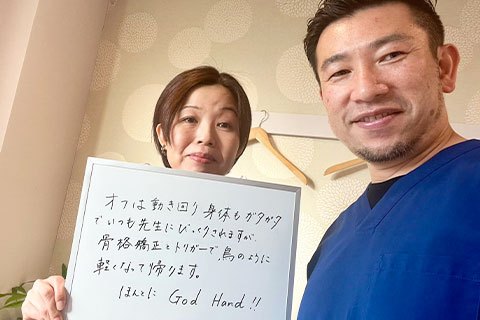 オフは動き回り身体もガタガタ
でいつも先生にびっくりされますが、
骨格矯正とトリガーで、鳥のように
軽くなって帰ります。
ほんとに God Hand!!